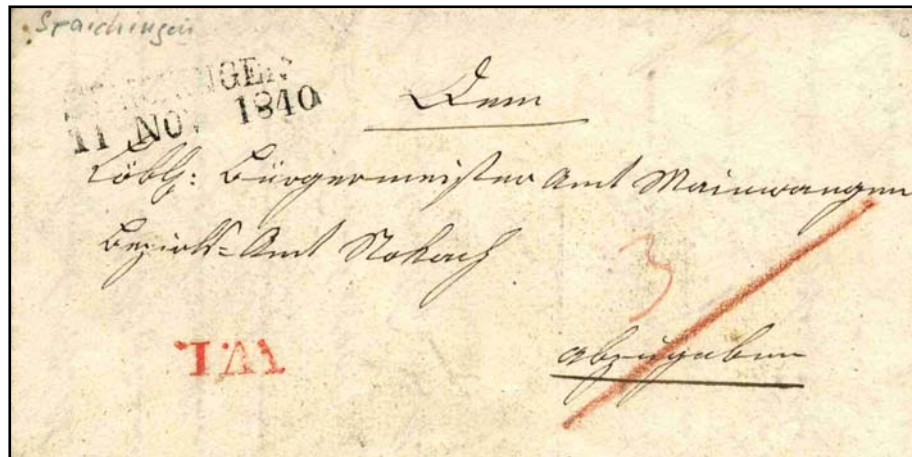 Spaichingen
SPAICHINGEN
11 NOV 1840
Dem
Löbl: Bürgermeister Amt Mainwangen
Bezirks-Amt Stokach
3
abzugeben